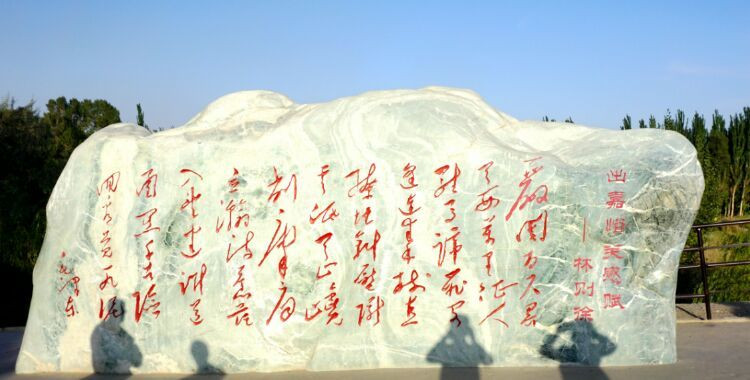 出嘉峪关感赋
——林则徐
嚴関百尺界
天西万里征人
驻马蹄飞阁
遥连秦树直
缭垣斜压陇
云低天山巉
削摩肩
立瀚海苍茫
入望迷谁道
崤函千古险
回看只见一丸泥
毛泽东